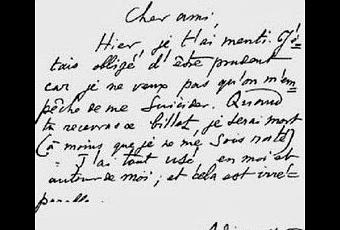 Cher ami,
Hier, je t'ai menti. J'é-
tais obligé d'être prudent
car je ne veux pas qu'on m'em-
pêche de me suicider. Quand
tu recevras ce billet, je serai mort
(à moins que je ne me sois raté)
- J'ai tout usé en moi et
autour de moi; et cela est irré-
parable.